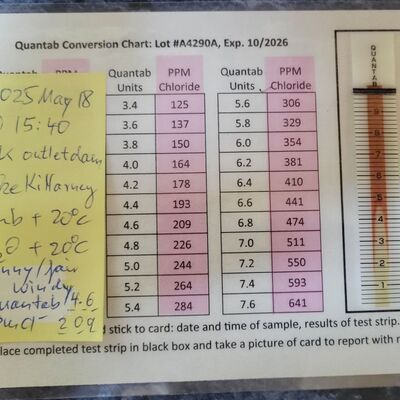 Quantab Conversion Chart: Lot #A4290A, Exp. 10/2026
Quantab PPM Quantab PPM Quantab PPM
Units Chloride Units Chloride
3.4 125 5.6 306
3.6 137 5.8 329
3.8 150 6.0 354
4.0 164 6.2 381
4.2 178 6.4 410
4.4 193 6.6 441
4.6 209 6.8 474
4.8 226 7.0 511
5.0 244 7.2 550
5.2 264 7.4 593
5.4 284 7.6 641
025 May 18
15:40
outlet dam
Killarney
+ 20°C
+ 20°C
nny/fair
windy
uantab/4.6
209
d stick to card: date and time of sample, results of test strip.
lace completed test strip in black box and take a picture of card to report with
QUANTAB
9
8
7
6
5
4
3
2
1